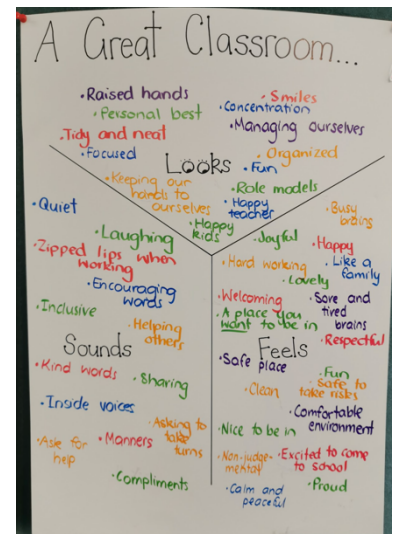 A Great Classroom...
•Raised hands
•Smiles
•Personal best
•Concentration
•Managing ourselves
•Tidy and neat
•Focused
Looks
•Organized
•Fun
•Keeping our
hands to
ourselves
•Role models
•Happy
teacher
•Happy
kids
•Quiet
•Laughing
•Zipped lips when
working
•Encouraging
words
•Inclusive
•Helping
others
Sounds
•Kind words
•Sharing
•Inside voices
•Asking to
take
turns
•Ask for
help
•Manners
•Compliments
•Busy
brains
•Joyful
•Happy
•Hard working
•Like a
family
•Lovely
•Welcoming
•Sore and
tired
brains
•A place you
want to be in
•Respectful
Feels
•Safe place
•Fun
•Safe to
take risks
•Clean
•Comfortable
environment
•Nice to be in
•Non-judge-
mental
•Excited to come
to school
•Calm and
peaceful
•Proud